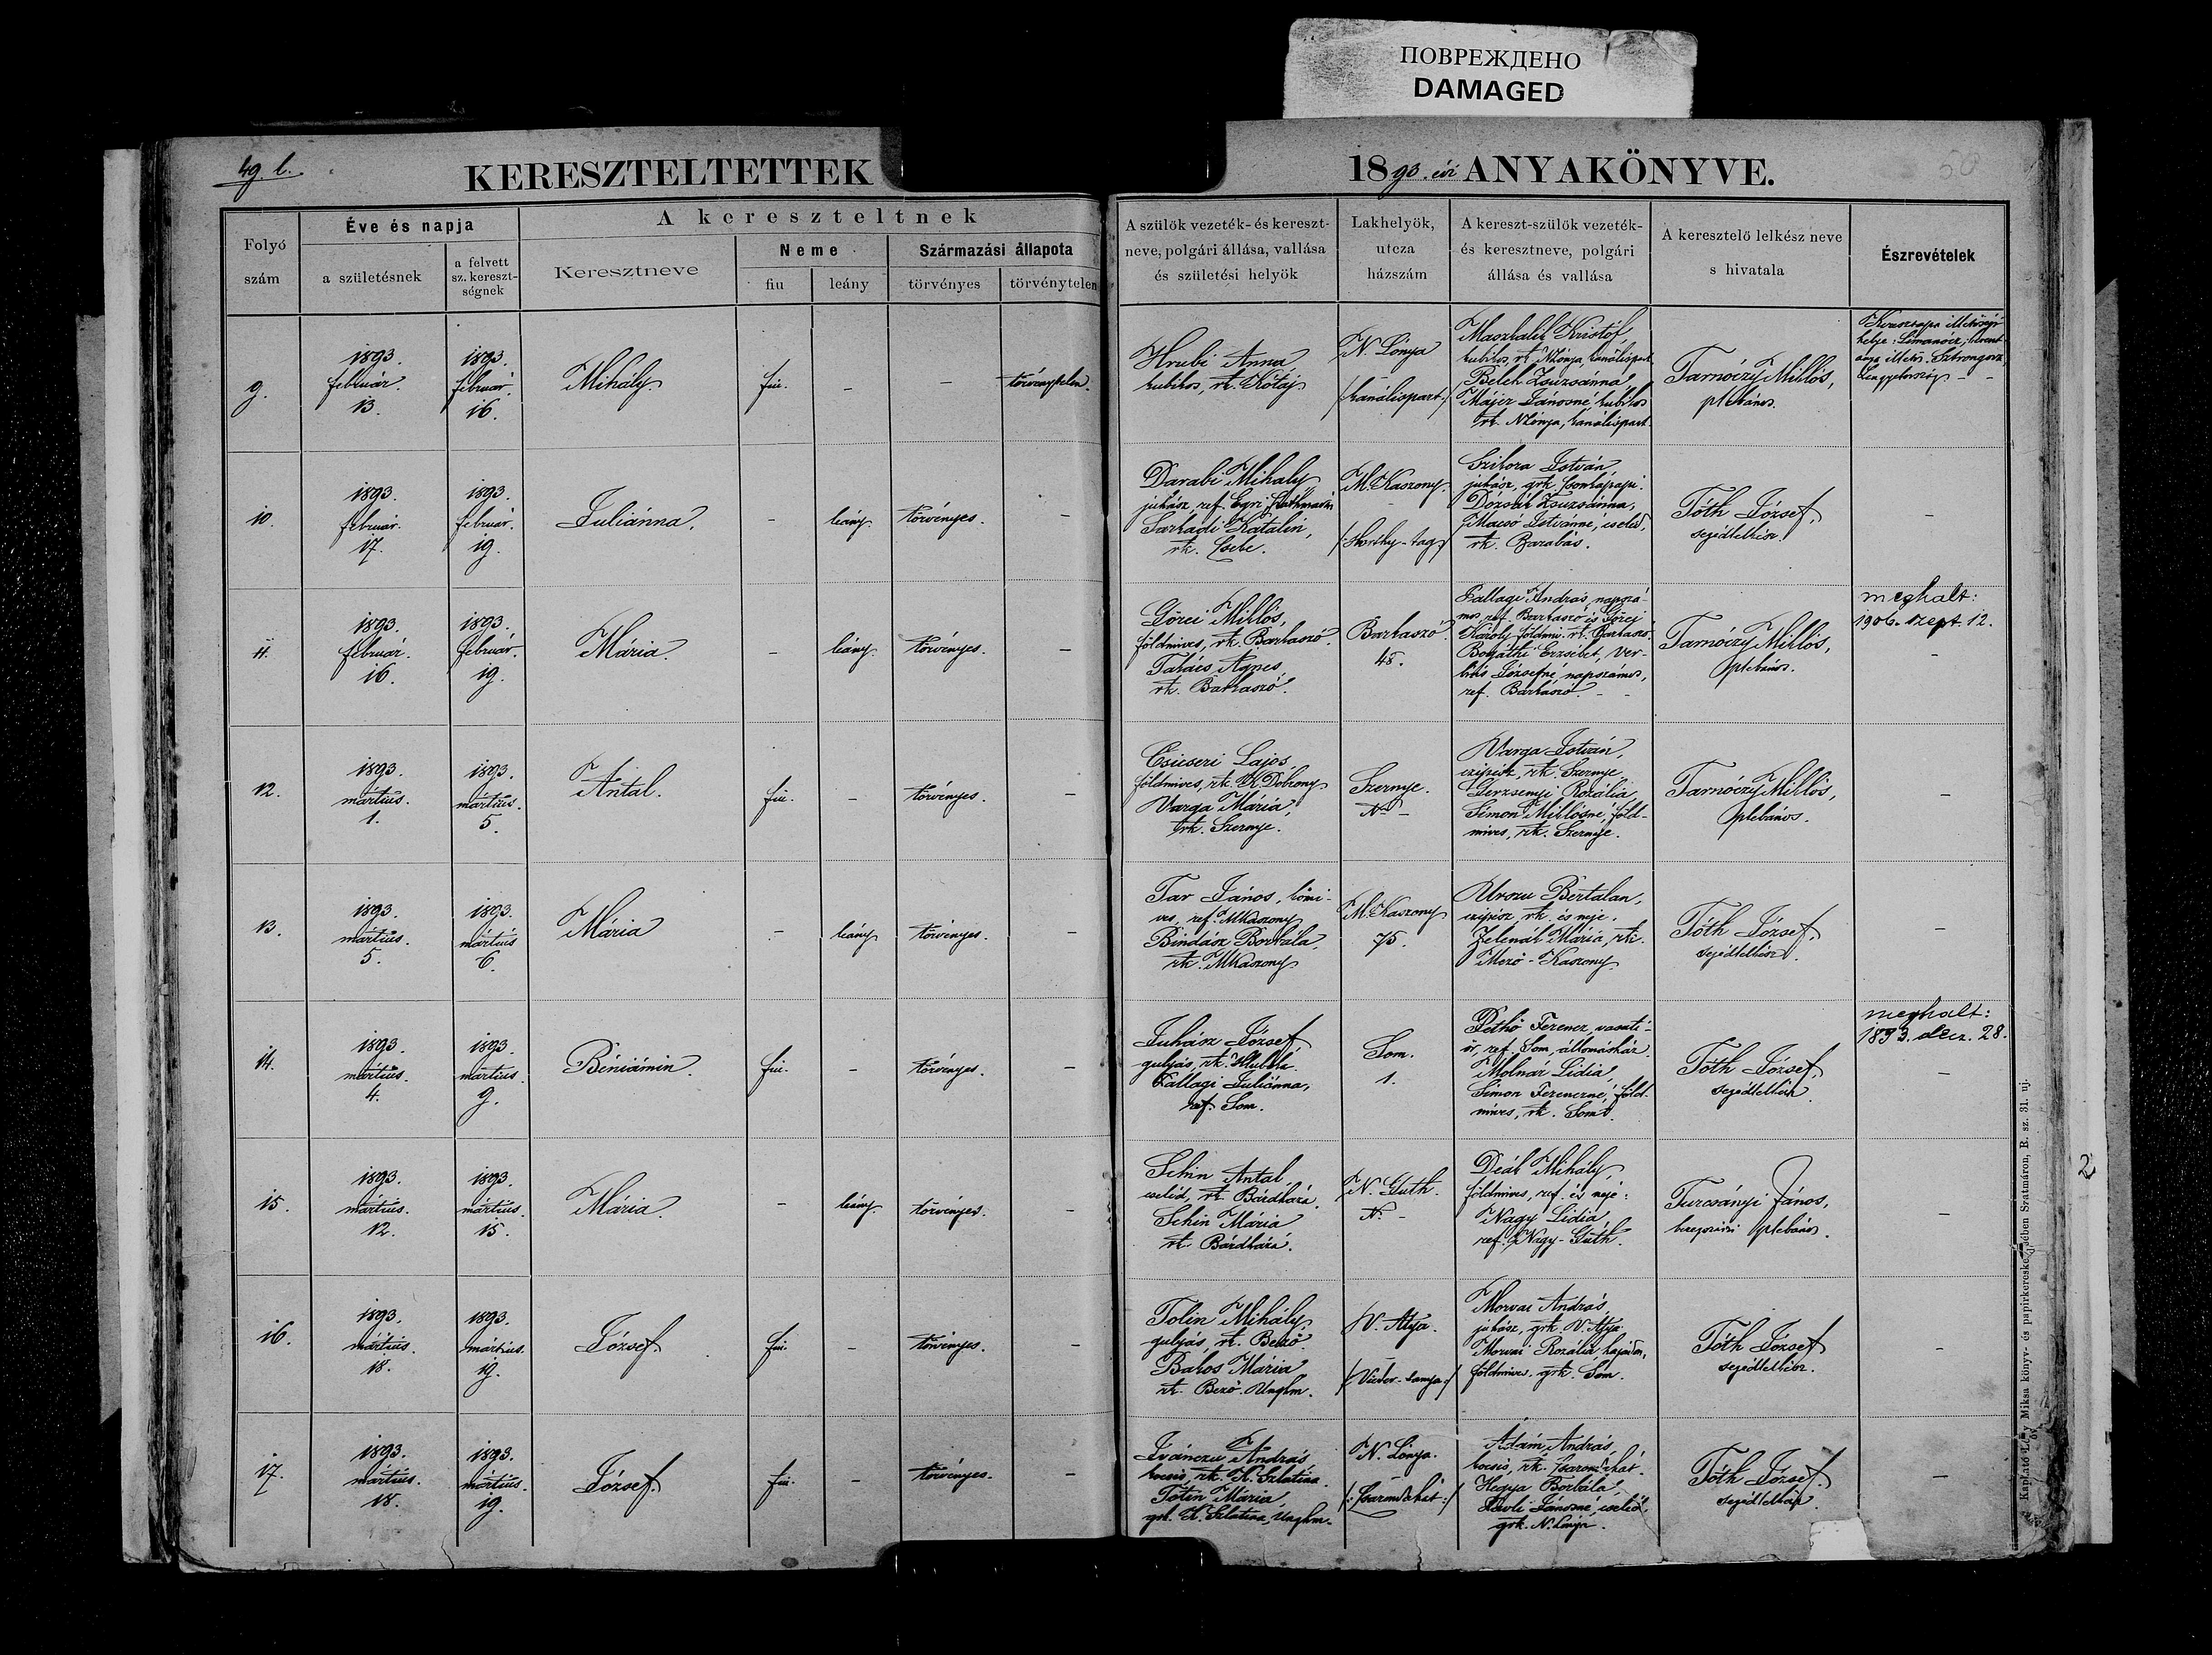 ПОВРЕЖДЕНО
DAMAGED
49. l.
KERESZTELTETTEK
1893. évi ANYAKÖNYVE.
50
Folyó szám
Éve és napja
a születésnek
a felvett sz. kereszt-ségnek
A kereszteltnek
Keresztneve
Neme
fiu
leány
Származási állapota
törvényes
törvénytelen
A szülök vezeték- és kereszt-
neve, polgári állása, vallása
és születési helyök
Lakhelyök,
utcza
házszám
A kereszt-szülök vezeték-
és keresztneve, polgári
állása és vallása
A keresztelö lelkész neve
s hivatala
Észrevételek
9.
1893. február. 13.
1893. február. 16.
Mihály.
fiu.
–
–
törvénytelen.
Hrubi Anna
kubikos, rk. Kótaj
N. Lónya
/kanálispart./
Kristóf,
kubikos, rk. NLónya, kanálispart
Zsuzsánna,
Májer Jánosné kubikos
rk. NLónya, kanálispart.
Tarnóczy Miklós,
plebános.
10.
1893. február. 17.
1893. február. 19.
Juliánna.
–
leány
törvényes.
–
Darabi Mihály
juhász, ref.
Sarkadi Katalin,
rk. Csebe.
M. Kaszony.
István,
juhász, grk.
Zsuzsánna,
Macsó Istvánné, cseléd,
rk. Barabás.
Tóth József,
segédlelkész.
–
11.
1893. február. 16.
1893. február. 19.
Mária.
–
leány.
törvényes.
–
Görei Miklós,
földmives, rk. Barkaszó.
Takács Ágnes,
rk. Barkaszó.
Barkaszó.
48.
Kallagi András, napszá-
mos, ref. Barkaszó és Görei
Károly földmi. rk. Barkaszó,
Bogáthi Erzsébet,
Józsefné, napszámos,
ref. Barkaszó. – –
Tarnóczy Miklós,
plebános.
meghalt:
1906. szept. 12.
–
12.
1893. mártius. 1.
1893. mártius. 5.
Antal.
fiu.
–
törvényes.
–
Csicseri Lajos,
földmives, rk. K. Dobrony
Varga Mária,
rk. Szernye.
Szernye.
No –
Varga István,
czipész, rk. Szernye,
Rozália,
Simon Miklósné, föld-
mives, rk. Szernye.
Tarnóczy Miklós,
plebános.
–
13.
1893. mártius. 5.
1893. mártius 6.
Mária
–
leány
törvényes.
–
Tar János, kömi-
ves, ref. MKaszony
Bindász Borbála
rk. MKaszony
M. Kaszony
75.
Urszu Bertalan,
czipész, rk. és neje.
Zelenák Mária, rk.
Mezö-Kaszony
Tóth József,
segédlelkész.
–
14.
1893. mártius. 4.
1893. mártius. 9.
Béniámin.
fiu.
–
törvényes.
–
Juhász József
gulyás, rk.
Kallagi Juliánna,
ref. Som.
Som.
1.
Pethö Ferencz, vasuti-
ör, ref. Som, állomásház.
Molnár Lidia,
Simon Ferenczné, föld-
mives, rk. Som.
Tóth József,
segédlelkész.
meghalt:
1893. dez. 28.
–
15.
1893. mártius. 12.
1893. mártius. 15.
Mária.
–
leány.
törvényes.
–
Schin Antal
cseléd, rk. Bárdháza.
Schin Mária
rk. Bárdháza.
N. Guth.
No –
Deák Mihály,
földmives, ref. és neje:
Nagy Lidia,
ref. Nagy-Guth.
Turcsányi János,
beregszászi plebános.
–
16.
1893. mártius. 18.
1893. mártius. 19.
József.
fiu.
–
törvényes.
–
Tolin Mihály,
gulyás, rk. Bezö.
Balos Mária
rk. Bezö. Unghm.
V. Atya.
/tanya./
Morvai András,
juhász, grk. V. Atya.
Morvai Rozália, hajadon,
földmives. grk. Som.
Tóth József
segédlelkész.
–
17.
1893. mártius. 18.
1893. mártius. 19.
József.
fiu.
–
törvényes.
–
Ivánczu András,
kocsis, rk. K. Szlatina.
Mária,
grk. K. Szlatina, Unghm.
N. Lónya.
Ádám András,
kocsis, rk.
Hegya Borbála,
Jánosné, cseléd,
grk. N. Lónya.
Tóth József.
segédlelkész.
–
Miksa könyv- és papirkereskedésében Szatmáron, R. sz. 31. uj.
2